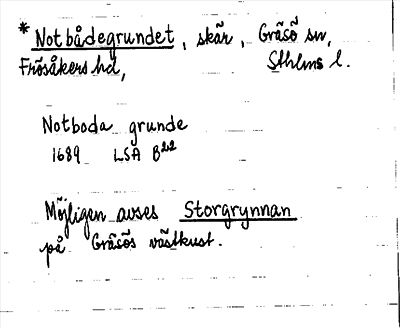 *Notbådegrundet, skär, Gräsö sn,
Frösåkers hd, Sthlms l.
Notboda grunde
1689 LSA B22
Möjligen avses Storgrynnan
på Gräsös västkust.